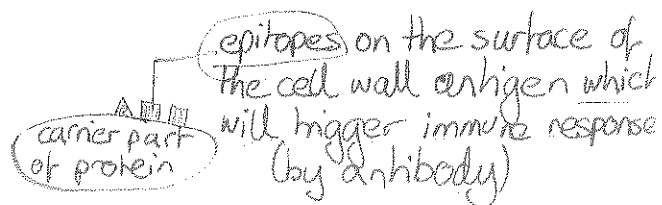 epitopes on the surface of
the cell wall antigen which
will trigger immune response
(by antibody)
carrier part
of protein